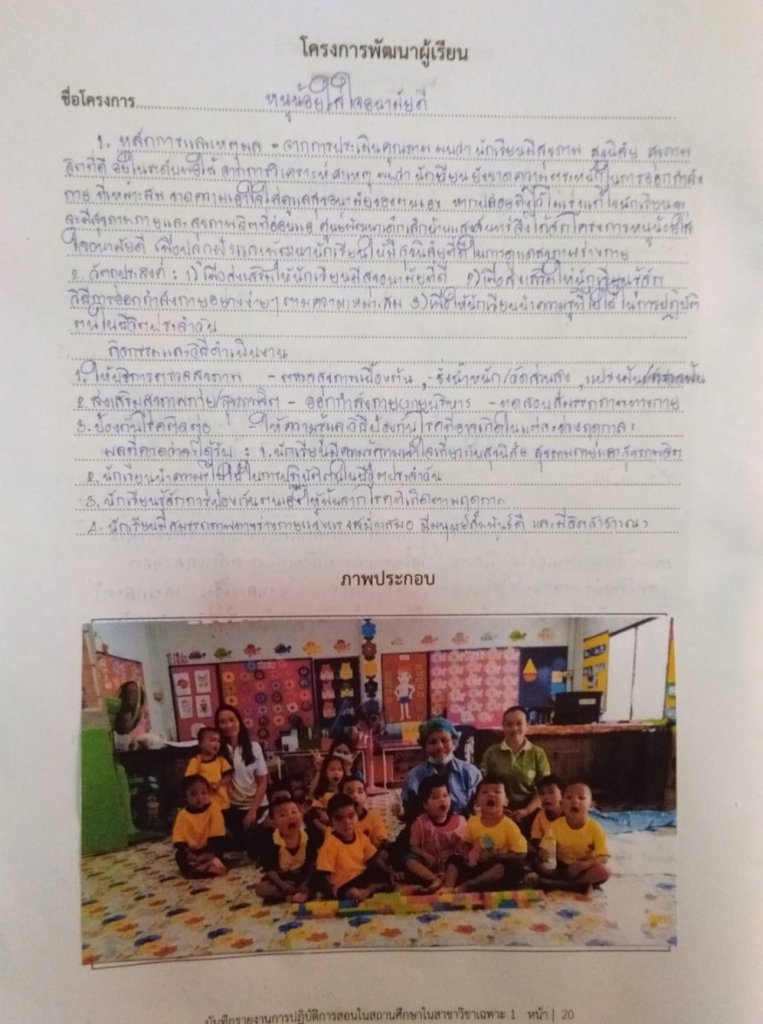 โครงการพัฒนาผู้เรียน
ชื่อโครงการ หนูน้อยใส่ใจอนามัยดี
1. หลักการและเหตุผล = จากการประเมินคุณภาพ พบว่า นักเรียนมีสุขภาพ สุขนิสัย สุขภาพ
จิตที่ดี อยู่ในระดับพอใช้ จากการวิเคราะห์สาเหตุ พบว่า นักเรียนยังขาดความตระหนักในการออกกำลัง
กาย ที่เหมาะสม ขาดความเอาใจใส่ดูแลสุขอนามัยของตนเอง หากปล่อยทิ้งไว้ไม่เร่งแก้ไขนักเรียน
จะมีสุขภาพกายและสุขภาพจิตที่อ่อนแอ ศูนย์พัฒนาเด็กเล็กบ้าน จึงได้จัดโครงการหนูน้อยใส่
ใจอนามัยดี เพื่อปลูกฝังและพัฒนานักเรียนให้มีสุขนิสัยที่ดีในการดูแลสุขภาพร่างกาย
2. วัตถุประสงค์ : 1) เพื่อส่งเสริมให้นักเรียนมีสุขอนามัยที่ดี 2) เพื่อส่งเสริมให้นักเรียนรู้จัก
วิธีการออกกำลังกายอย่างง่ายๆ ตามความเหมาะสม 3) เพื่อให้นักเรียนนำความรู้ที่ได้ใช้ในการปฏิบัติ
ตนในชีวิตประจำวัน
กิจกรรมและวิธีดำเนินงาน
1. ให้บริการตรวจสุขภาพ - ตรวจสุขภาพเบื้องต้น - ชั่งน้ำหนัก/วัดส่วนสูง, แปรงฟัน/
2. ส่งเสริมสุขภาพกาย/สุขภาพจิต - ออกกำลังกาย/กายบริหาร - ทดสอบสมรรถภาพทางกาย
3. ป้องกันโรคติดต่อ - ให้ความรู้และวิธีป้องกันโรคที่อาจเกิดในแต่ละช่วงฤดูกาล
ผลที่คาดว่าจะได้รับ : 1. นักเรียนมีความรู้ความเข้าใจเกี่ยวกับสุขนิสัย สุขภาพกายและสุขภาพจิต
2. นักเรียนนำความรู้ไปใช้ในการปฏิบัติตนในชีวิตประจำวัน
3. นักเรียนรู้จักการป้องกันตนเองให้พ้นจากโรคที่เกิดตามฤดูกาล
4. นักเรียนมีสมรรถภาพทางร่างกายแข็งแรงสม่ำเสมอ มีมนุษย์สัมพันธ์ดี และมีจิตสาธารณะ
ภาพประกอบ
บันทึกรายงานการปฏิบัติการสอนในสถานศึกษาในสาขาวิชาเฉพาะ 1 หน้า | 20